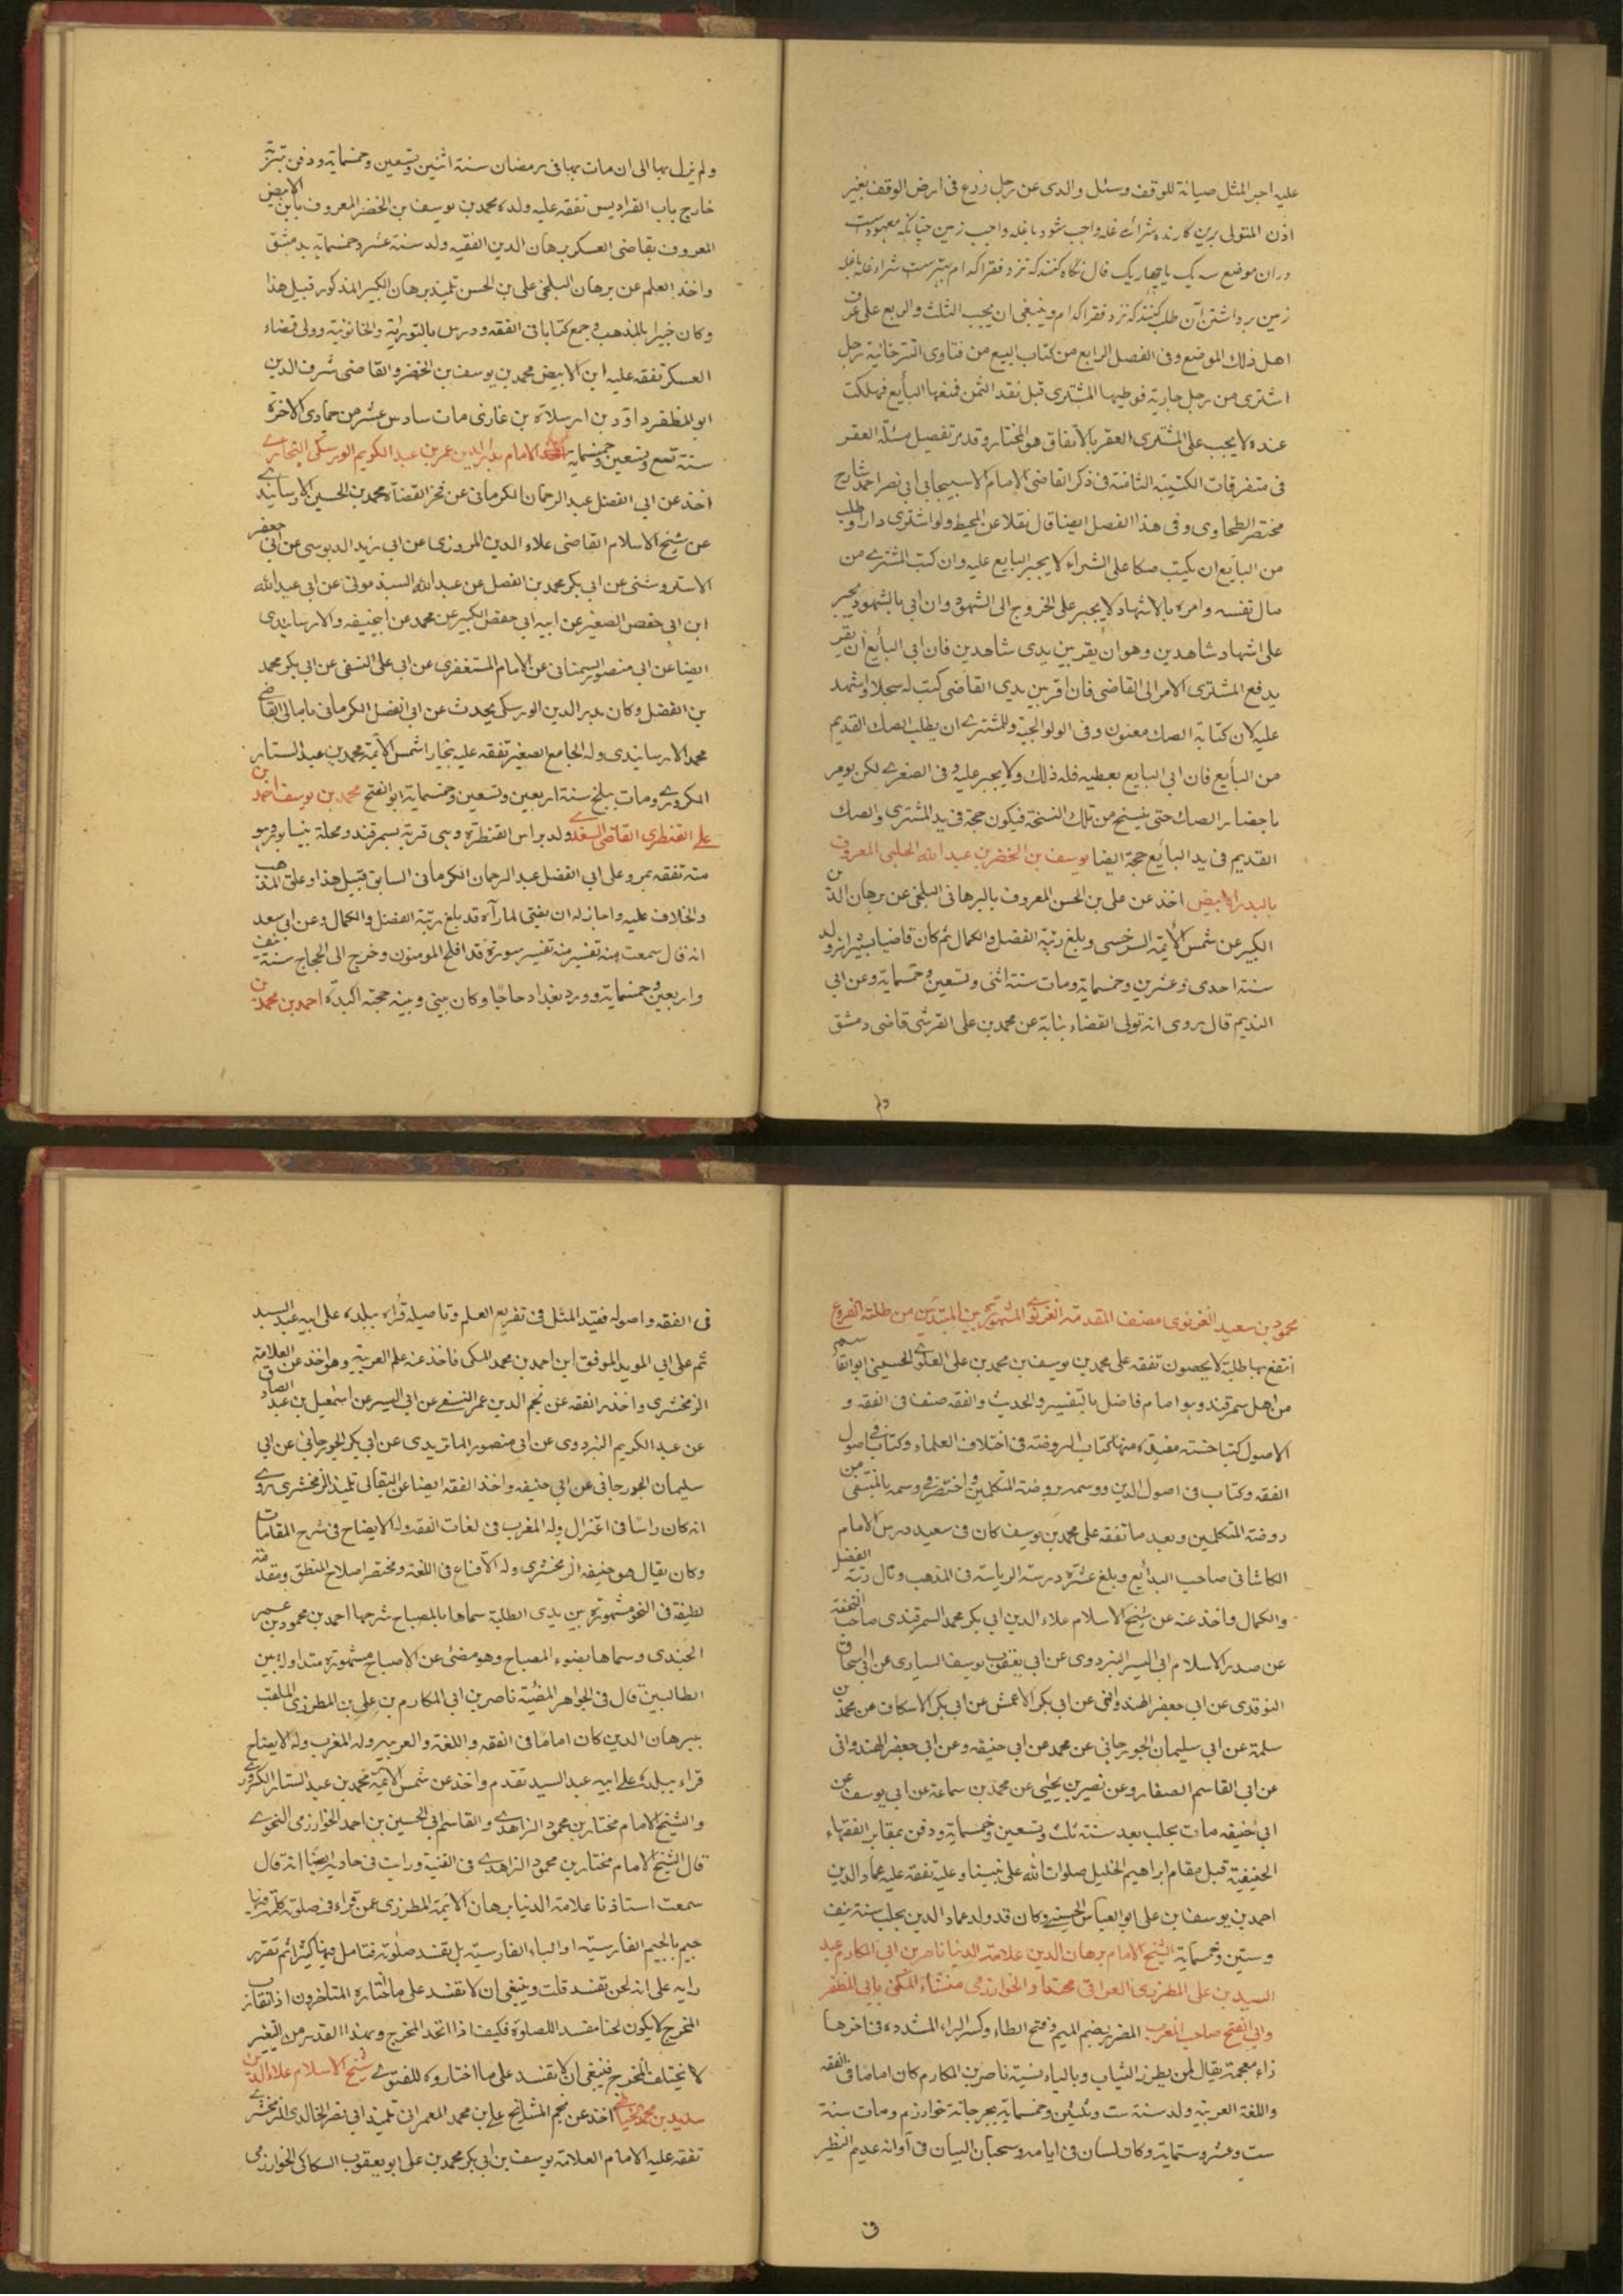 عليه اجر المثل صيانة للوقف وسئل والدى عن رجل زرع فى ارض الوقف بغير
اذن المتولى برين كارنده شرائ غله واجب شود يا غله واجب زمين چنانكه معهودست
دران موضع سه يك يا چهار يك قال نگاه كنند كه نزد فقرا كدام بهترست شراء غله يا غله
زمين برداشتن آن طلب كنند كه نزد فقرا كدام وينبغى ان يجب الثلث والربع على عرف
اهل ذلك الموضع وفى الفصل الرابع من كتاب البيع من فتاوى التترخانية رجل
اشترى من رجل جارية فوطيها المشترى قبل نقد الثمن فمنعها البأيع فهلكت
عنده لا يجب على المشترى العقر بالاتفاق هو المختار وقد مر تفصيل مسئلة العقر
فى متفرقات الكتيبة الثامنة فى ذكر القاضى الامام الاسبيجابى ابى نصر احمد شارح
مختصر الطحاوى وفى هذا الفصل ايضا قال نقلا عن المحيط ولو اشترى دارا وطلب
من البايع ان يكتب صكا على الشراء لا يجبر البايع عليه وان كتب المشترى من
مال نفسه وامره بالاشهاد لا يجبر على الخروج الى الشهود وان ابى بالشهود يجبر
على اشهاد شاهدين وهو ان يقر بين يدى شاهدين فان ابى البأيع ان يقر
يدفع المشترى الامر الى القاضى فان اقر بين يدى القاضى كتب له سجلا واشهد
عليه لان كتابة الصك معنون وفى الولوالجية وللمشترى ان يطلب الصك القديم
من البأيع فان ابى البايع يعطيه فله ذلك ولا يجبر عليه وفى الصغرى لكن يومر
باحضار الصك حتى ينسخ من تلك النسخة فيكون حجة فى يد المشترى والصك
القديم فى يد البأيع حجة ايضا يوسف بن الخضر بن عبد الله الحلبى المعروف
بالبدر الابيض اخذ عن على بن الحسن المعروف بالبرهانى البلخى عن برهان الدين
الكبير عن شمس الأئمة السرخسى وبلغ رتبة الفضل والكمال ثم كان قاضيا بشيراز ولد
سنة احدى وعشرين وخمسماية ومات سنة اثنى وتسعين وخمسماية وعن ابى
النديم قال روى انه تولى القضاء نيابة عن محمد بن على القرشى قاضى دمشق
ولم
ولم يزل بها الى ان مات بها فى رمضان سنة اثنين وتسعين وخمسماية ودفن بتربة
خارج باب الفراديس تفقه عليه ولده محمد بن يوسف بن الخضر المعروف بابن الابيض
المعروف بقاضى العسكر برهان الدين الفقيه ولد سنة عشر وخمسماية بدمشق
واخذ العلم عن برهان البلخى على بن الحسن تلميذ برهان الكبير المذكور قبيل هذا
وكان خبيرا بالمذهب وجمع كتابا فى الفقه ودرس بالنورية والخاتونية وولى قضاء
العسكر تفقه عليه ابن الابيض محمد بن يوسف بن الخضر والقاضى شرف الدين
ابو المظفر داؤد بن ارسلان بن غازى مات سادس عشر من جمادى الاخرة
سنة تسع وتسعين وخمسماية الامام بدر الدين عمر بن عبد الكريم الورسكى البخارى
اخذ عن ابى الفضل عبد الرحمان الكرمانى عن فخر القضاة محمد بن الحسين الارسابندى
عن شيخ الاسلام القاضى علاء الدين المروزى عن ابى زيد الدبوسى عن ابى جعفر
الاستروشنى عن ابى بكر محمد بن الفضل عن عبد الله السبذمونى عن ابى عبد الله
ابن ابى حفص الصغير عن ابيه ابى حفص الكبير عن محمد عن ابيحنيفه والارسابندى
ايضا عن ابى منصور السمنانى عن الامام المستغفرى عن ابى على النسفى عن ابى بكر محمد
بن الفضل وكان بدر الدين الورسكى يحدث عن ابى الفضل الكرمانى بامالى القاضى
محمد الارسابندى وله الجامع الصغير تفقه عليه بنجارا شمس الأئمة محمد بن عبد الستار
الكردرى ومات ببلخ سنة اربعين وتسعين وخمسماية ابو الفتح محمد بن يوسف احمد بن
على القنطرى القاضى السغدى ولد براس القنطرة وهى قرية بسمرقند ومحلة بنيسابور وهو
منه تفقه بمرو على ابى الفضل عبد الرحمان الكرمانى السابق قبيل هذا وعلق المذهب
والخلاف عليه واجاز له ان يفتى لما رآه قد بلغ رتبة الفضل والكمال وعن ابى سعد
انه قال سمعت منه تفسير منه تفسير سورة قد افلح المومنون وخرج الى الحجاج سنة نيف
واربعين وخمسماية وورد بغداد حاجا وكان بينى وبينه صحبة اكيدة احمد بن محمد بن
محمود بن سعيد الغزنوى مصنف المقدمة الغزنوى المشهورة بين المبتدئين من طلبة الفروع
انتفع بها طلبة لا يحصون تفقه على محمد بن يوسف بن محمد بن على العلوى الحسينى ابو القاسم
من اهل سمرقند وهو امام فاضل بالتفسير والحديث والفقه صنف فى الفقه و
الاصول كتبا حسنة مفيدة منها كتاب الروضة فى اختلاف العلماء وكتاب فى اصول
الفقه وكتاب فى اصول الدين ووسمه بروضة المتكلمين واختصره ووسمه بالمنتقى من
روضة المتكلمين وبعد ما تفقه على محمد بن يوسف كان فى سعيد درس الامام
الكاشانى صاحب البدأيع وبلغ عشرة درسة الرياسة فى المذهب ونال رتبة الفضل
والكمال واخذ عنه عن شيخ الاسلام علاء الدين ابى بكر محمد السمرقندى صاحب التحفة
عن صدر الاسلام ابى اليسر البزدوى عن ابى يعقوب يوسف السيارى عن ابى اسحاق
النوقدى عن ابى جعفر الهندوانى عن ابى بكر الاعمش عن ابى بكر الاسكاف عن محمد بن
سلمة عن ابى سليمان الجورجانى عن محمد عن ابى حنيفه وعن ابى جعفر الهندوانى
عن ابى القاسم الصفار وعن نصير بن يحيى عن محمد بن سماعة عن ابى يوسف عن
ابى حنيفه مات بحلب بعد سنة ثلث وتسعين وخمسماية ودفن بمقابر الفقهاء
الحنيفية قبل مقام ابراهيم الخليل صلوات الله على نبينا وعليه تفقه عليه عماد الدين
احمد بن يوسف بن على ابو العباس الحسينى وكان قد ولد عماد الدين بحلب سنة نيف
وستين وخمسماية الشيخ الامام برهان الدين علامة الدنيا ناصر بن ابى المكارم عبد
السيد بن على المطرزى العراقى محتدا والخوارزمى منشاء المكنى بابى المظفر
وابى الفتح صاحب المغرب المطرزى بضم الميم وفتح الطاء وكسر الراء المشددة وفى اخرها
زاء معجمة يقال لمن يطرز الثياب وبالياء نسبة ناصر بن المكارم كان اماما فى الفقه
واللغة العربية ولد سنة ست وثلثين وخمسماية بجرجانة خوارزم ومات سنة
ست وعشر وستماية وكان لسان فى ايامه وسحبان البيان فى آوانه عديم النظير
فى
فى الفقه واصوله فقيد المثل فى تفريع العلم وتاصيله قراء ببلده على ابيه عبد السيد
ثم على ابى المويد الموفق ابن احمد بن محمد المكى فاخذ عنه علم العربية وهو اخذ عن العلامة
الزمخشرى واخذ الفقه عن نجم الدين عمر النسفى عن ابى اليسر عن اسمعيل بن عبد الصادق
عن عبد الكريم البزدوى عن ابى منصور الماتريدى عن ابى بكر الجورجانى عن ابى
سليمان الجورجانى عن ابى حنيفه واخذ الفقه ايضا عن البقالى تلميذ الزمخشرى روى
انه كان راسا فى اعتزال وله المغرب فى لغات الفقه وله الايضاح فى شرح المقامات
وكان يقال هو خليفة الزمخشرى وله الاقناع فى اللغة ومختصر اصلاح المنطق ومقدمة
لطيفة فى النحو مشهورة بين يدى الطلبة سماها بالمصباح شرحها احمد بن محمود بن عمر
الجندى وسماها بضوء المصباح وهو مغنى عن الاصباح مشهورة متداولة بين
الطالبين قال فى الجواهر المضيئة ناصر بن ابى المكارم بن على بن المطرزى الملقب
ببرهان الدين كان اماما فى الفقه واللغة والعربية وله المغرب وله الايضاح
قراء ببلده على ابيه عبد السيد تقدم واخذ عن شمس الأئمة محمد بن عبد الستار الكردرى
والشيخ الامام مختار بن محمود الزاهدى والقاسم بن الحسين بن احمد الخوارزمى النحوى
قال الشيخ الامام مختار بن محمود الزاهدى فى القنية ورايت فى حاويه ايضا انه قال
سمعت استاذنا علامة الدنيا برهان الائمة المطرزى عمن قراء فى صلوته كلمة فيها
جيم بالجيم الفارسية او الباء الفارسية بل تفسد صلوته فتامل فيها كثيرا ثم تقرر
رايه على انه لحن تفسد قلت وينبغى ان لا تفسد على ما اختاره المتاخرون اذ تقارب
المخرج لا يكون لحنا مفسد اللصلوة فكيف اذا اتحد المخرج وبهذا القدر من التغيير
لا يختلف المخرج فينبغى ان لا تفسد على ما اختاروه للفتوى شيخ الاسلام علاء الدين
سديد بن محمد الخياطى اخذ عن نجم المشايخ على بن محمد العمرانى تلميذ ابى نصر الخالدى الزمخشرى
تفقه عليه الامام العلامة يوسف بن ابى بكر محمد بن على ابو يعقوب السكاكى الخوارزمى